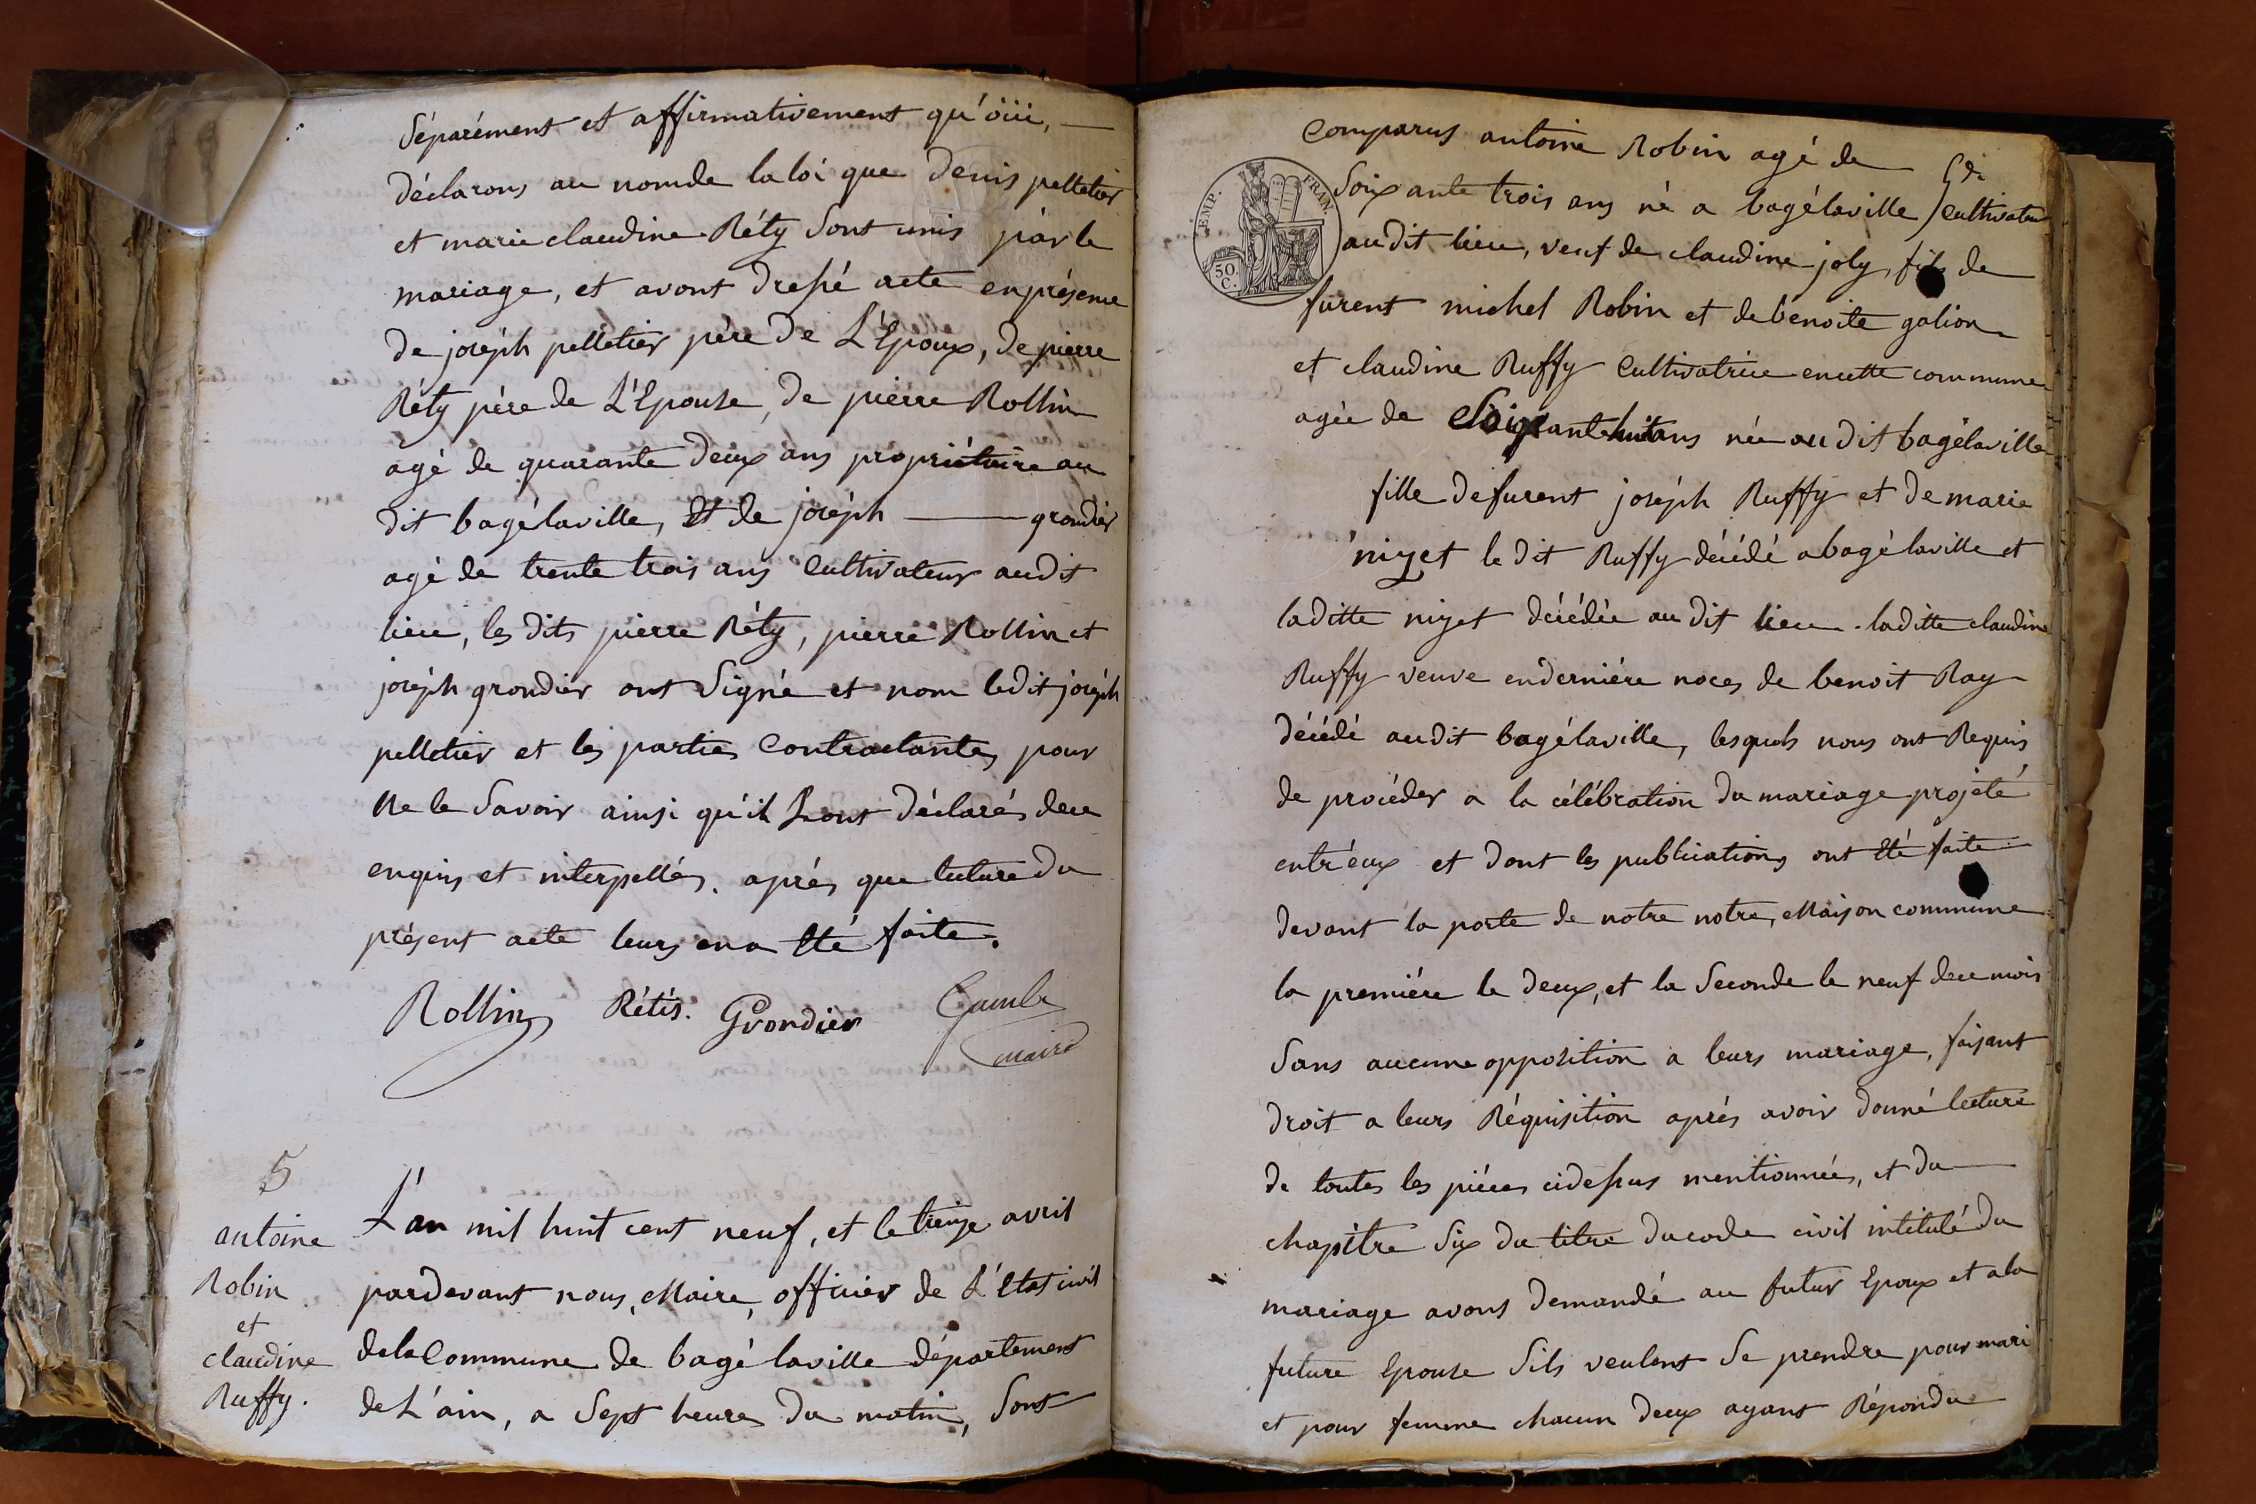 Séparément et affirmativement qu'öüi,
déclarons au nomde la loi que denis pelletier
et marie claudine Réty Sont unis par le
mariage, et avont dressé acte en présence
de joséph pelletier père de L'Epoux, de pierre
Réty père de L'Epouse, de pierre Rollin
agé de quarante deux ans propriétaire au
dit bagélaville, Et de joséph grondier
agé de trente trois ans Cultivateur audit
lieu, les dits pierre Réty, pierre Rollin et
joséph grondier ont Signé et nom ledit joséph
pelletier et les parties Contractantes pour
Ne le Savoir ainsi qu'il L'ont déclarés dece
enquis et interpellés. aprés que lecture du
présent acte leurs en a Eté faite.
Rollin Rétis. Grondier
maire
5
antoine
Robin
et
claudine
Ruffy.
L'an mil huit cent neuf, et le treize avril
pardevant nous, Maire, officier de L'Etat civil
dela Commune de bagé laville département
de L'ain, a Sept heures du matin, Sont
Comparus antoine Robin agé de
EMP. FRAN.
50.
C.
Soixante trois ans né a bagélaville / Cultivateur
audit lieu, veuf de claudine joly, fils de
furent michel Robin et de benoite galion
et claudine Ruffy Cultivatrice en cette commune
agée de Soixantehuitans née au dit bagélaville
fille defurent joséph Ruffy et de marie
niget le dit Ruffy décédé a bagé laville et
laditte niget décédée au dit lieu. laditte claudine
Ruffy veuve endernière noces de benoit Ray
décédé audit bagélaville, lesquels nous ont Requis
de procéder a la célébration du mariage projeté
entr'eux et dont les publications ont Eté faite
devant la porte de notre notre, Maison commune
la première le deux, et la Seconde le neuf dece mois
Sans aucune opposition a leurs mariage, faisant
droit a leurs Réquisition aprés avoir donné lecture
de toutes les pièces cidessus mentionnées, et du
chapitre Six du titre du code civil intitulé du
mariage avons demandé au futur Epoux et a la
future Epouse Sils veulent Se prendre pour mari
et pour femme chacun deux ayant Répondu